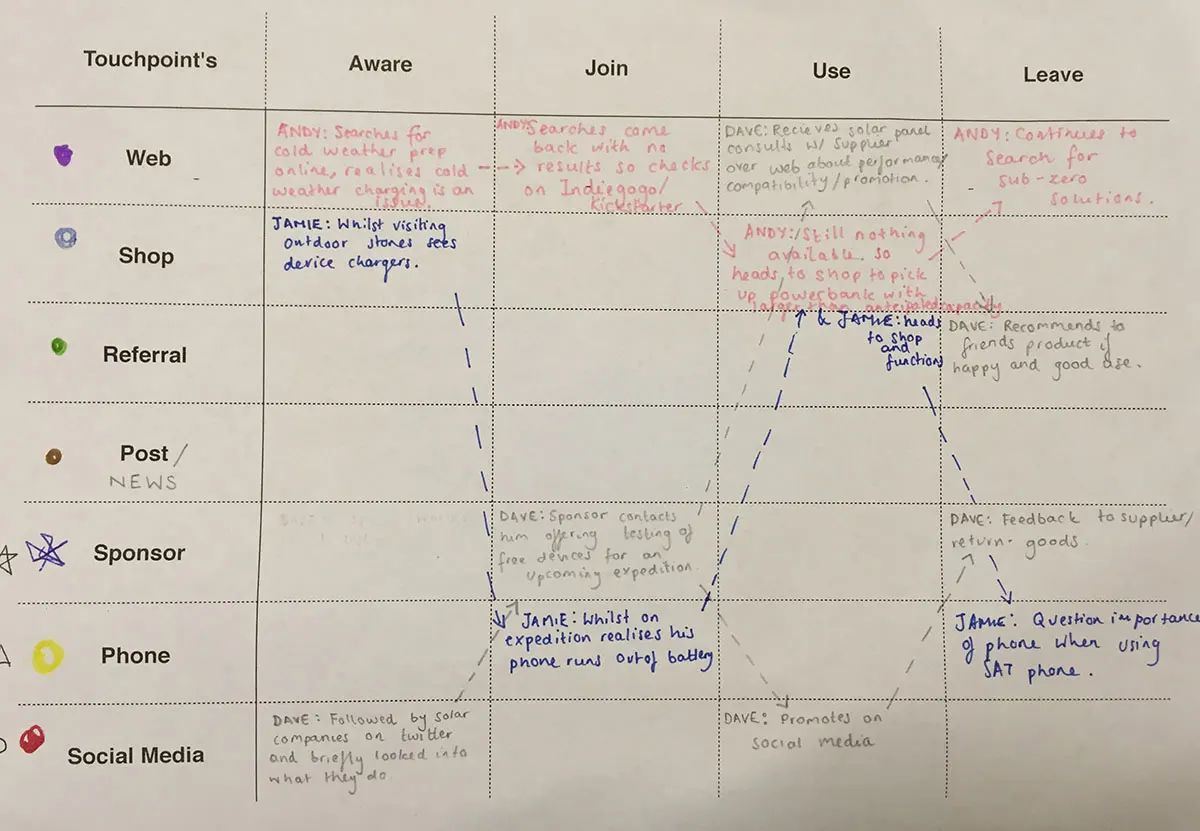 Touchpoint's
Aware
Join
Use
Leave
Web
ANDY: Searches for
cold weather prep
online, realises cold
weather charging is an
issue.
ANDY: Searches come
back with no
results so checks
on Indiegogo/
Kickstarter
DAVE: Recieves solar panel
consults w/ supplier
over web about performance/
compatibility/promotion.
ANDY: Continues to
search for
sub-zero
solutions.
Shop
JAMIE: Whilst visiting
outdoor stores sees
device chargers.
ANDY: Still nothing
available. So
heads to shop to pick
up powerbank with
larger than anticipated capacity
Referral
& JAMIE: heads
to shop
and
functions
DAVE: Recommends to
friends product if
happy and good use.
Post /
NEWS
Sponsor
DAVE: Sponsor contacts
him offering testing of
free devices for an
upcoming expedition.
DAVE: Feedback to supplier/
return goods.
Phone
JAMIE: Whilst on
expedition realises his
phone runs out of battery
JAMIE: Question importance
of phone when using
SAT phone.
Social Media
DAVE: Followed by solar
companies on twitter
and briefly looked into
what they do
DAVE: Promotes on
social media